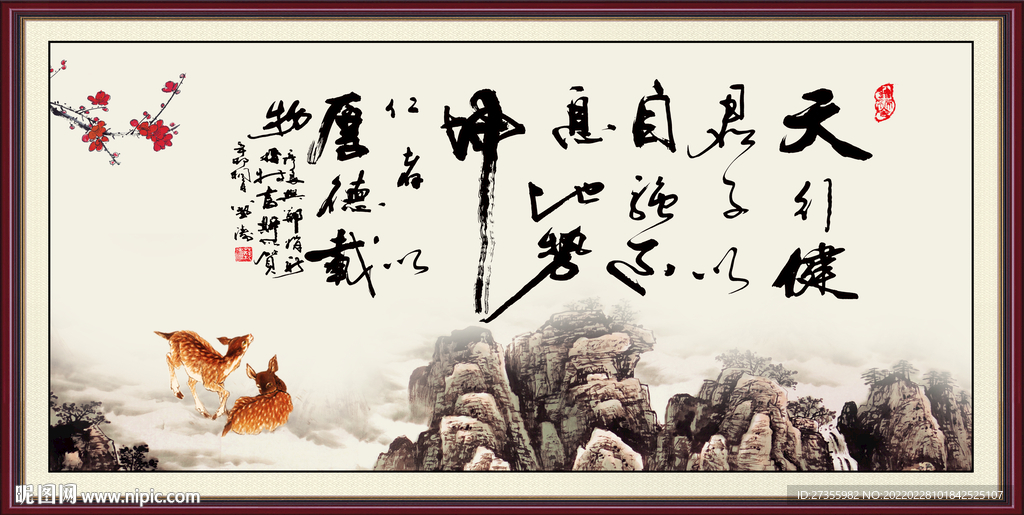 天行健
君子以
自強不
息地勢
坤
仁者以
厚德載
物
昵图网 www.nipic.com
ID:27355982 NO:20220228101842525107